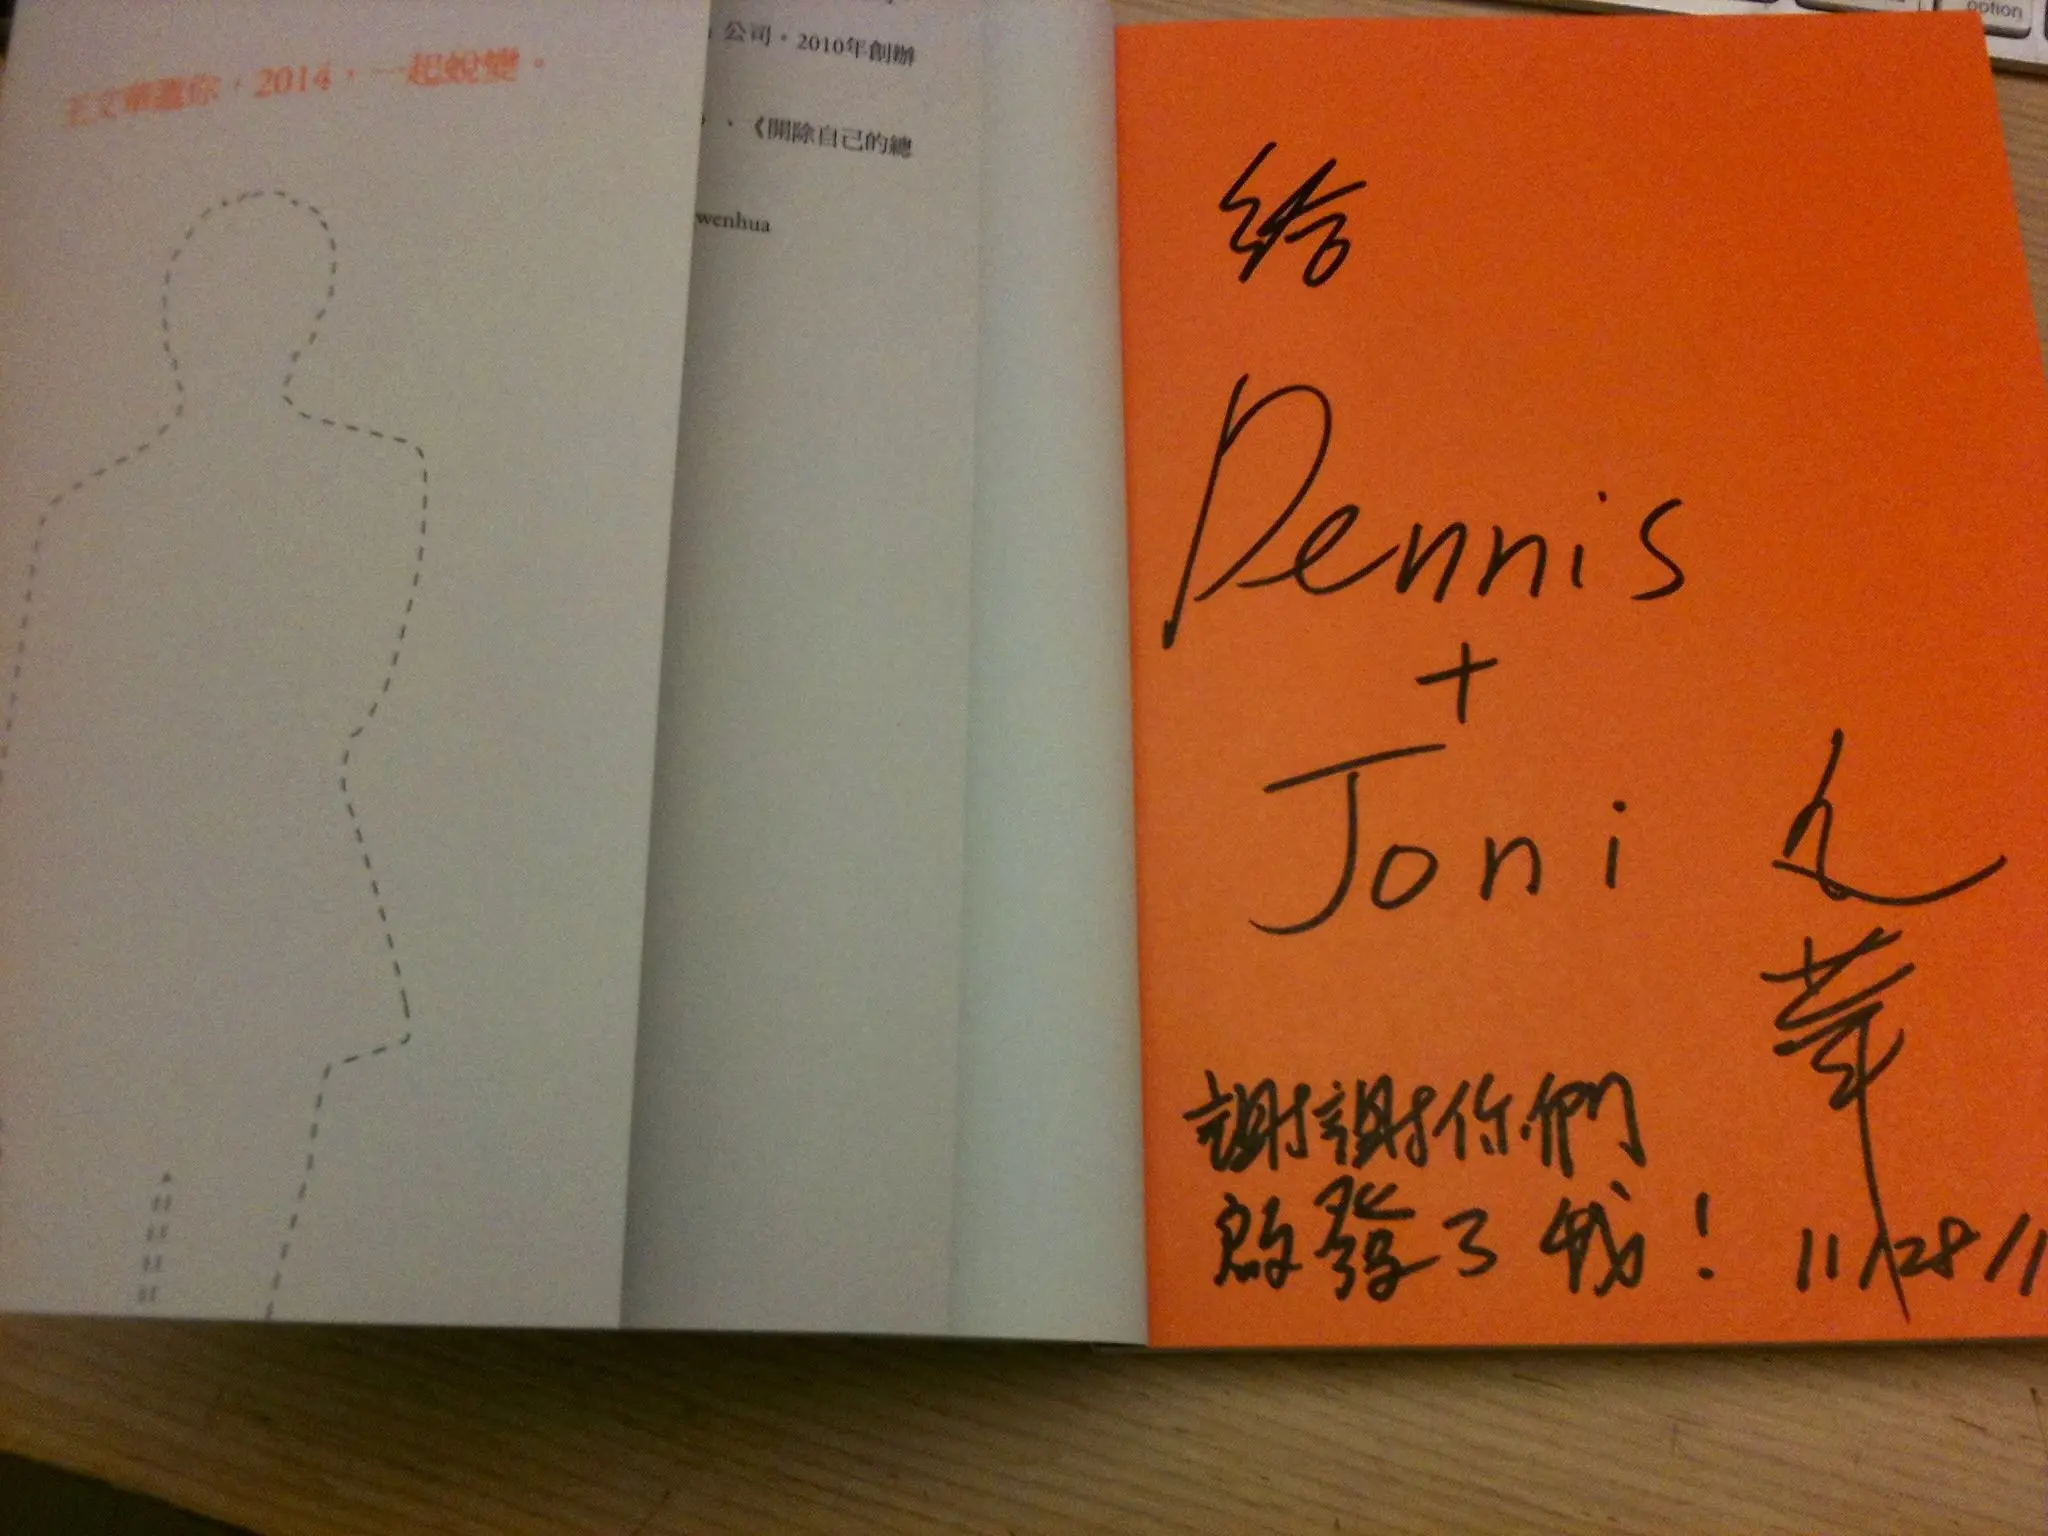 王文華邀你，2014，一起蛻變。
公司。2010年創辦
》、《開除自己的總
wenhua
option
給
Dennis
+
Joni
文華
謝謝你們
啟發了我！
11/28/1